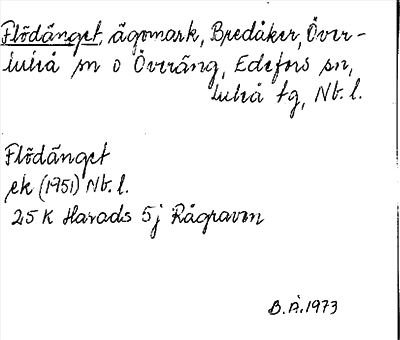 Flödänget, ägomark, Bredåker, Över-
luleå sn o Överäng, Edefors sn,
Luleå tg, Nb. l.
Flödänget
ek (1951) Nb. l.
25 K Harads 5j Rågraven
B. Å. 1973